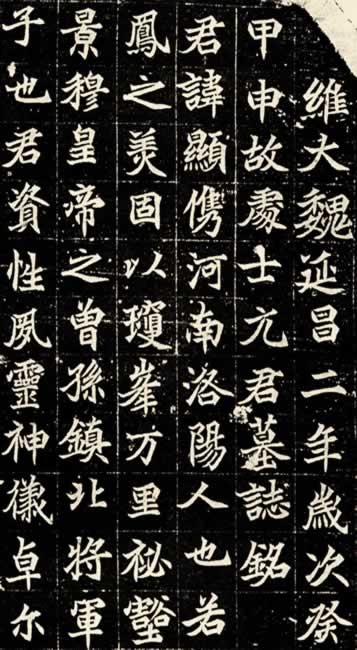 維大魏延昌二年歲次癸
甲申故處士元君墓誌銘
君諱顯儁河南洛陽人也若
鳳之美固以瓊峯万里祕壑
景穆皇帝之曾孫鎮北將軍
子也君資性夙靈神儀卓尔